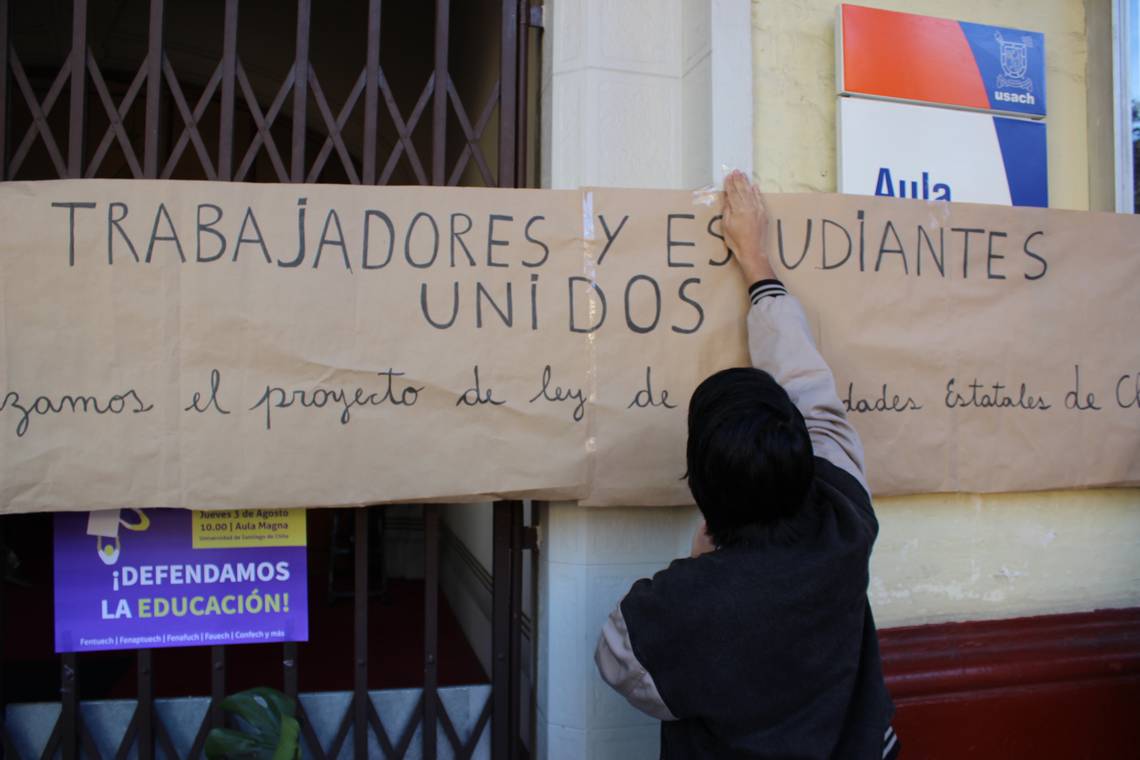 usach
Aula
TRABAJADORES Y ESTUDIANTES
UNIDOS
zamos el proyecto de ley de dades Estatales de Ch
Jueves 3 de Agosto
10.00 | Aula Magna
Universidad de Santiago de Chile
¡DEFENDAMOS
LA EDUCACIÓN!
Fentuech | Fenaptuech | Fenafuch | Fauech | Confech y más